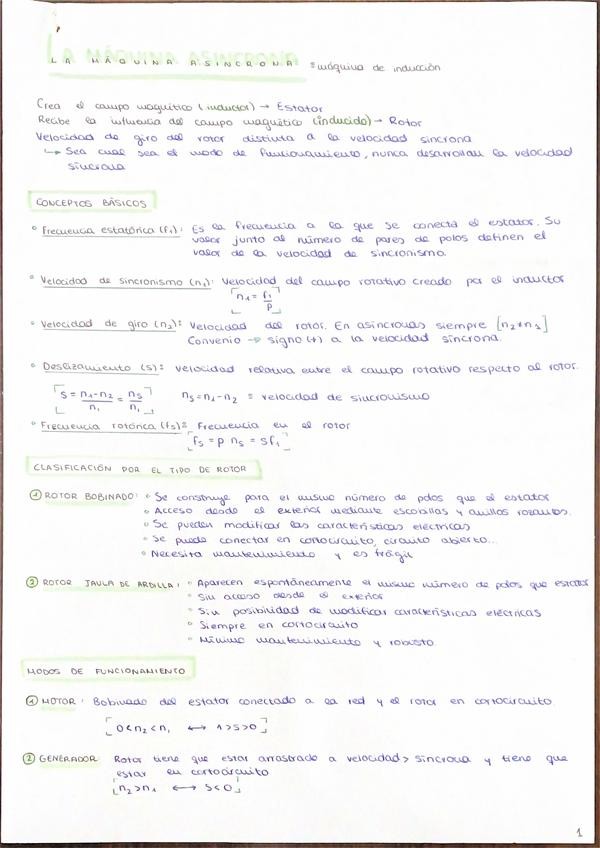 LA MÁQUINA ASINCRONA ≡ máquina de inducción
Crea el campo magnético (inductor) → Estator
Recibe la influencia del campo magnético (inducido) → Rotor
Velocidad de giro del rotor distinta a la velocidad sincrona
↳ Sea cual sea el modo de funcionamiento, nunca desarrollan la velocidad
síncrona
CONCEPTOS BÁSICOS
° Frecuencia estatórica (f₁): Es la frecuencia a la que se conecta el estator. Su
valor junto al número de pares de polos definen el
valor de la velocidad de sincronismo.
° Velocidad de sincronismo (n₁): Velocidad del campo rotativo creado por el inductor
[n₁ = f₁/p]
° Velocidad de giro (n₂): Velocidad del rotor. En asíncronas siempre [n₂ ≠ n₁]
Convenio → signo (+) a la velocidad síncrona.
° Deslizamiento (s): Velocidad relativa entre el campo rotativo respecto al rotor.
[s = n₁-n₂/n₁ = ns/n₁] ns = n₁-n₂ ≡ velocidad de sincronismo
° Frecuencia rotórica (fs): Frecuencia en el rotor
[fs = p ns = s f₁]
CLASIFICACIÓN POR EL TIPO DE ROTOR
① ROTOR BOBINADO: ° Se construye para el mismo número de polos que el estator
° Acceso desde el exterior mediante escobillas y anillos rozantes.
° Se pueden modificar las características eléctricas
° Se puede conectar en cortocircuito, circuito abierto...
° Necesita mantenimiento y es frágil
② ROTOR JAULA DE ARDILLA: ° Aparecen espontáneamente el mismo número de polos que estator
° Sin acceso desde el exterior
° Sin posibilidad de modificar características eléctricas
° Siempre en cortocircuito
° Mínimo mantenimiento y robusto.
MODOS DE FUNCIONAMIENTO
① MOTOR: Bobinado del estator conectado a la red y el rotor en cortocircuito.
[0 < n₂ < n₁ ↔ 1 > s > 0]
② GENERADOR: Rotor tiene que estar arrastrado a velocidad > síncrona y tiene que
estar en cortocircuito
[n₂ > n₁ ↔ s < 0]
1